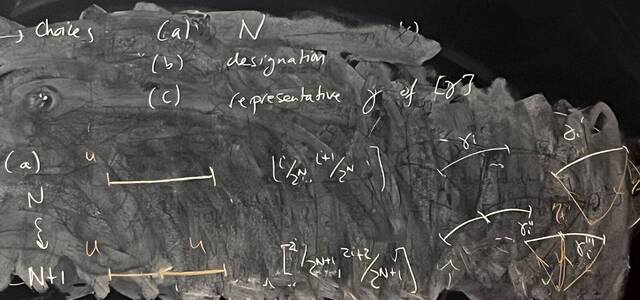 → Choices (a) N
(b) designation
(c) representative γ of [γ]
(a) u [i/2^N, i+1/2^N] γi γi'
N
u u [2i/2^{N+1}, 2i+2/2^{N+1}] γi'' γi'''
N+1